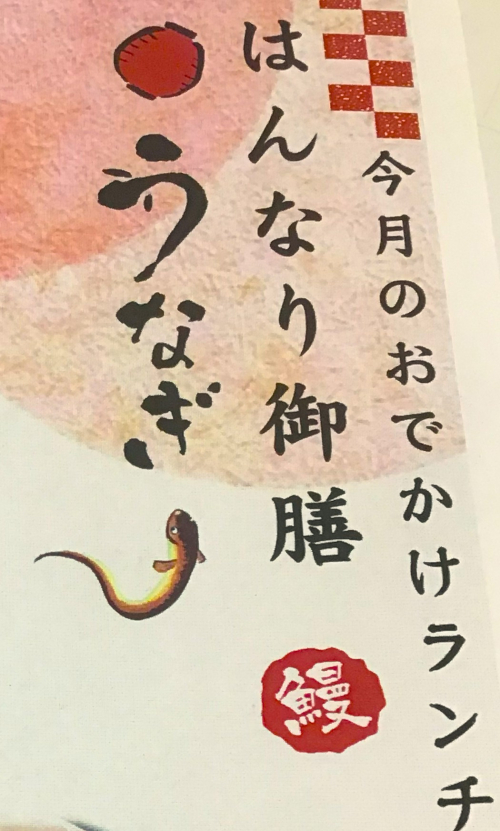 今月のおでかけランチ
はんなり御膳
鰻
うなぎ